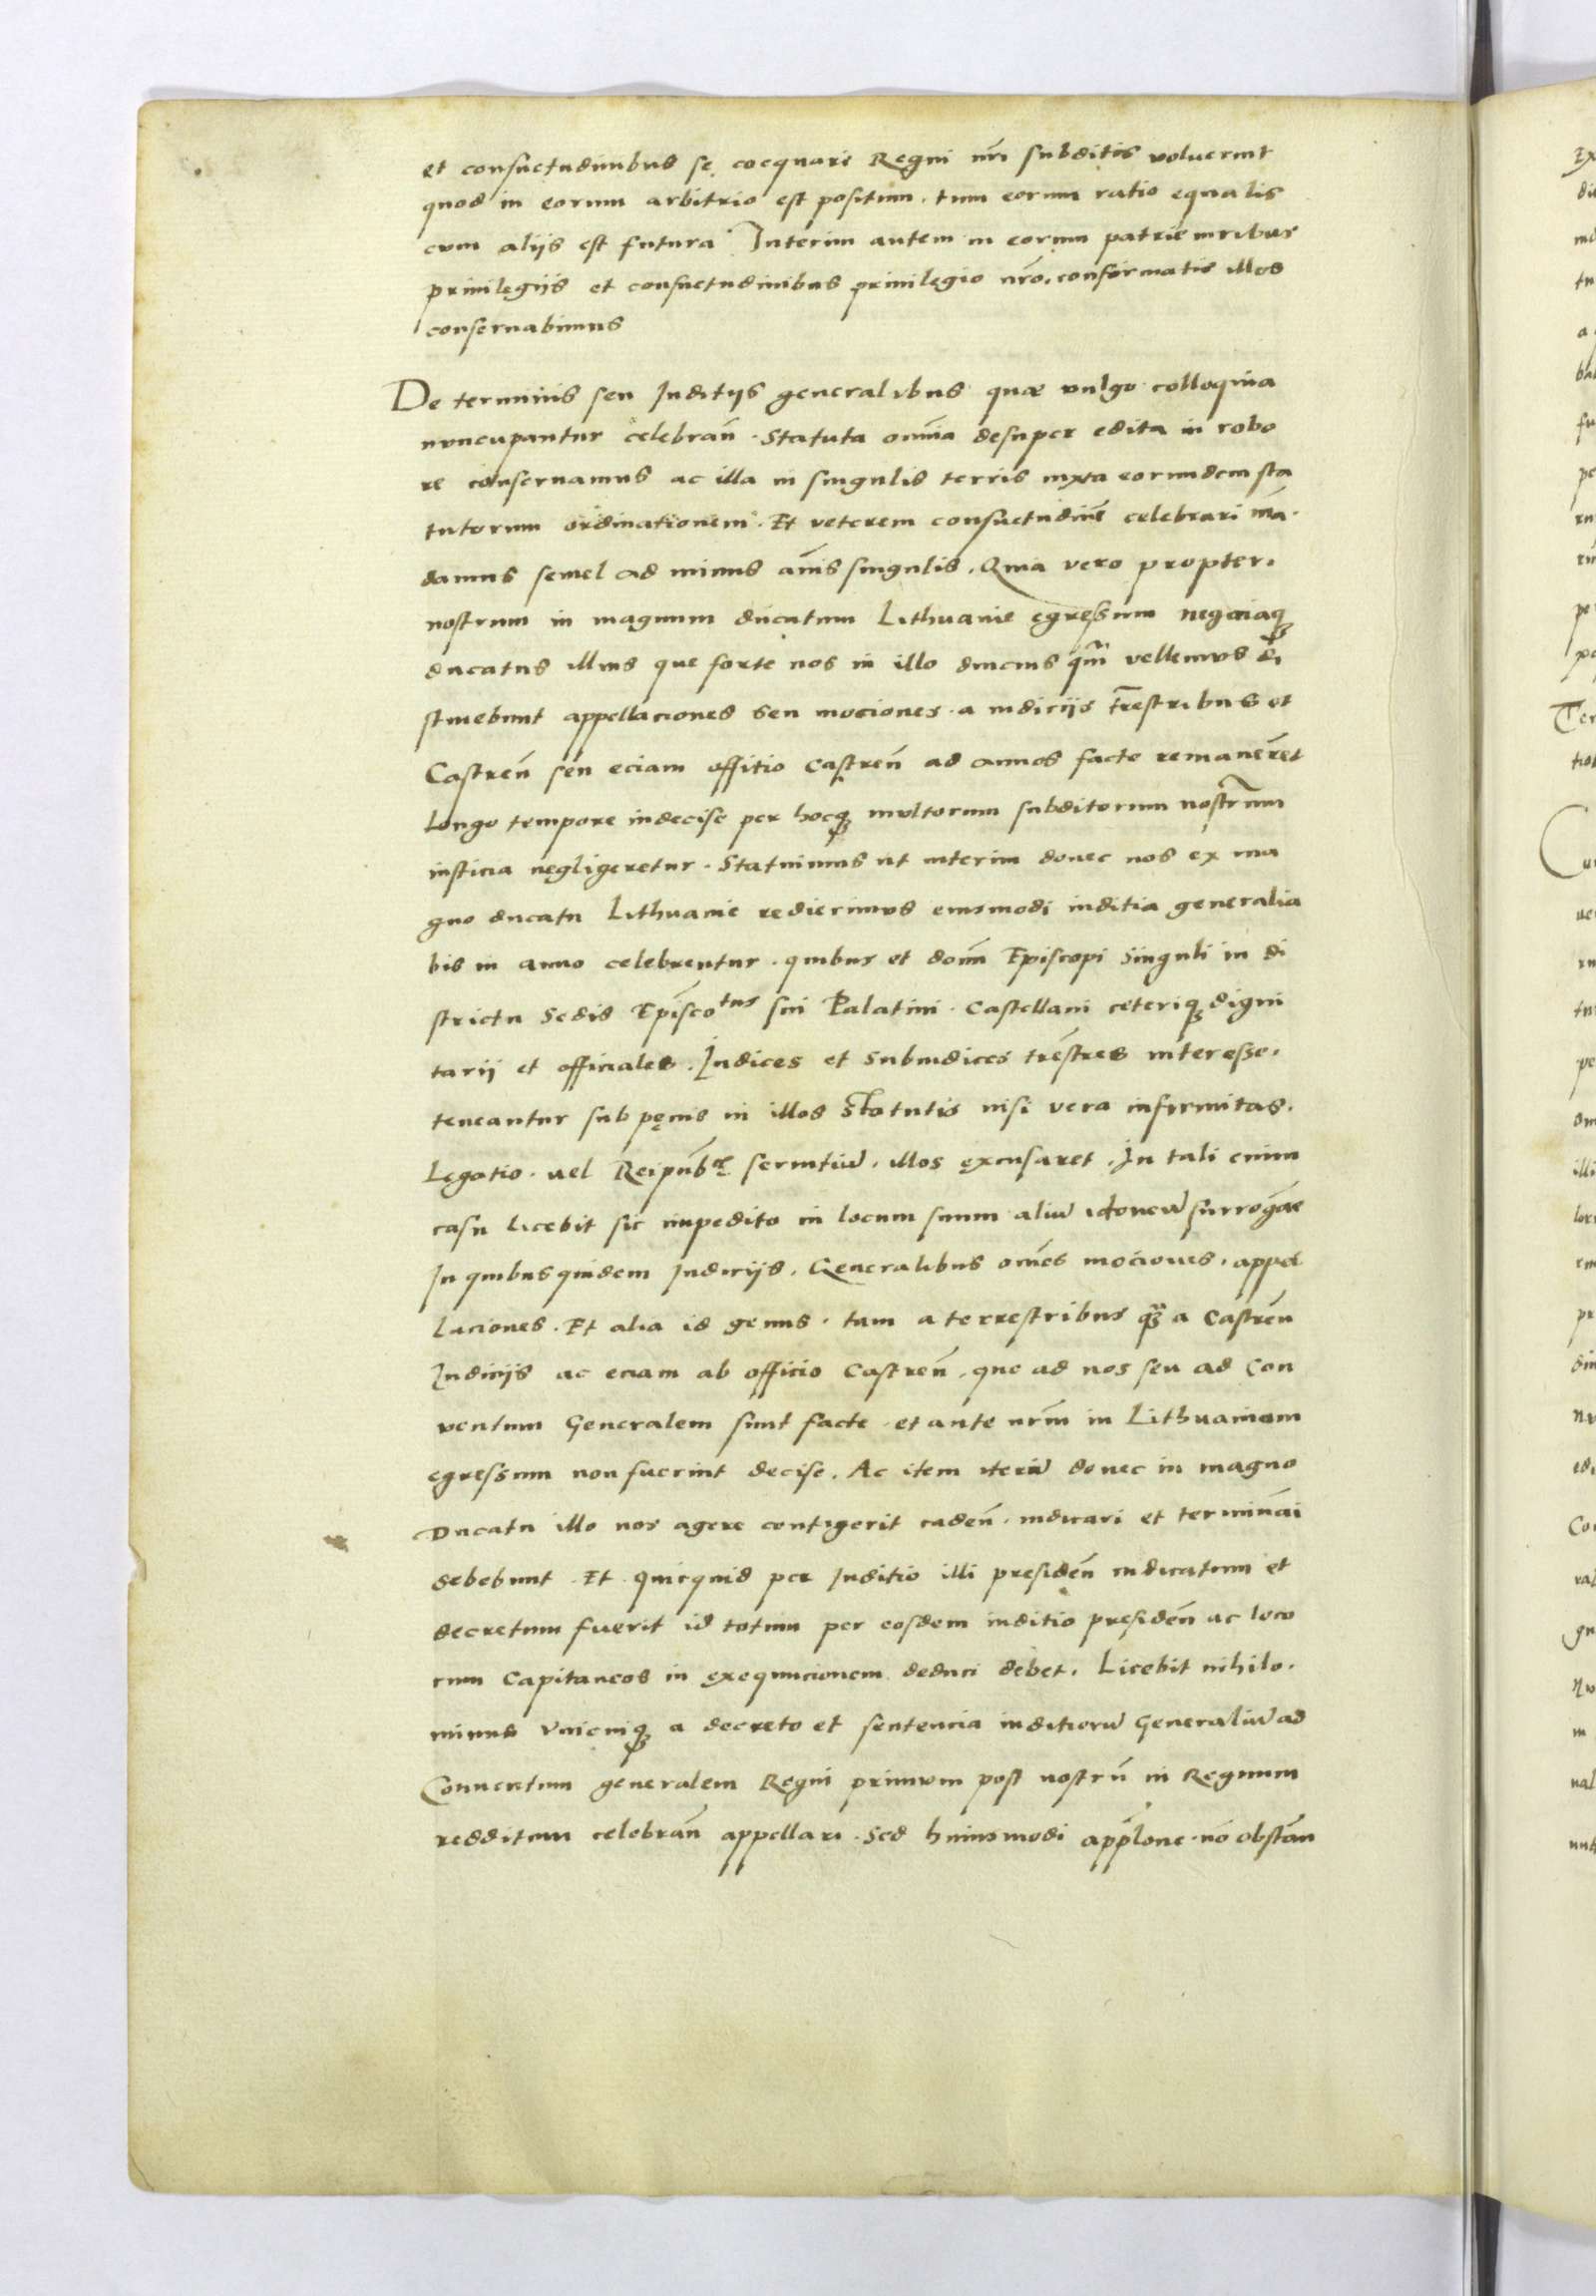 et consuetudinibus se coequari Regni nr̃i subditis voluerint
quod in eorum arbitrio est positum. tum eorum ratio equalis
cum aliis est futura Interim autem in eorum patrie iuribus
privilegiis et consuetudinibus privilegio nr̃o. confirmatis illos
conservabimus
De terminis seu Juditiis generalibus quae vulgo colloquia
nuncupantur celebran̄. Statuta omnīa desuper edita in robo
re conservamus ac illa in singulis terris iuxta eorundem sta
tutorum ordinationem. Et veterem consuetudinē celebrari mā.
damus semel ad minus annīs singulis. Quia vero propter.
nostrum in magnum ducatum Lithuanie egressum negociaq;
ducatus illius que forte nos in illo diucius qm̄ vellemus di
stinebunt appellaciones seu mociones. a iudiciis tr̄estribus et
Castren̄ seu eciam offitio castren̄ ad annos facte remanerēt
Longo tempore indecise per hocq; multorum subditorum nostrum
iusticia negligeretur. Statuimus ut interim donec nos ex ma
gno ducatu Lithuanie redierimus eiusmodi iuditia generalia
bis in anno celebrentur. quibus et domn̄ Episcopi singuli in di
strictu Sedis Ep̄iscotus sui Palatini. Castellani ceteriq; digni
tarii et officiales. Judices et Subiudices tr̄estres interesse.
teneantur sub penis in illos Statutis nisi vera infirmitas.
Legatio. vel Reipub̄ce servitiū. illos excusaret. In tali enim
casu licebit sic impedito in locum suum aliū idoneū surrogār̄e
In quibus quidem Judiciis. Generalibus omēs mociones. appel
laciones. Et alia id genus. tam a terrestribus q̄ a Castren̄
Judiciis ac eciam ab officio Castren̄. que ad nos seu ad Con
ventum Generalem sunt facte et ante nr̄m in Lithuaniam
egressum non fuerint decise. Ac item iterū donec in magno
Ducatu illo nos agere contigerit caden̄. iudicari et termināi
debebunt. Et quicquid per Juditio illi presiden̄ iudicatum et
decretum fuerit id totum per eosdem iuditio presiden̄ ac loco
rum Capitaneos in exequucionem deduci debet. Licebit nihilo.
minus vnicuiq; a decreto et sentencia iuditiorū Generaliū ad
Conventum generalem Regni primum post nostrū in Regnum
redditum celebran̄ appellari. Sed huiusmodi app̄lone. nō obstan̄